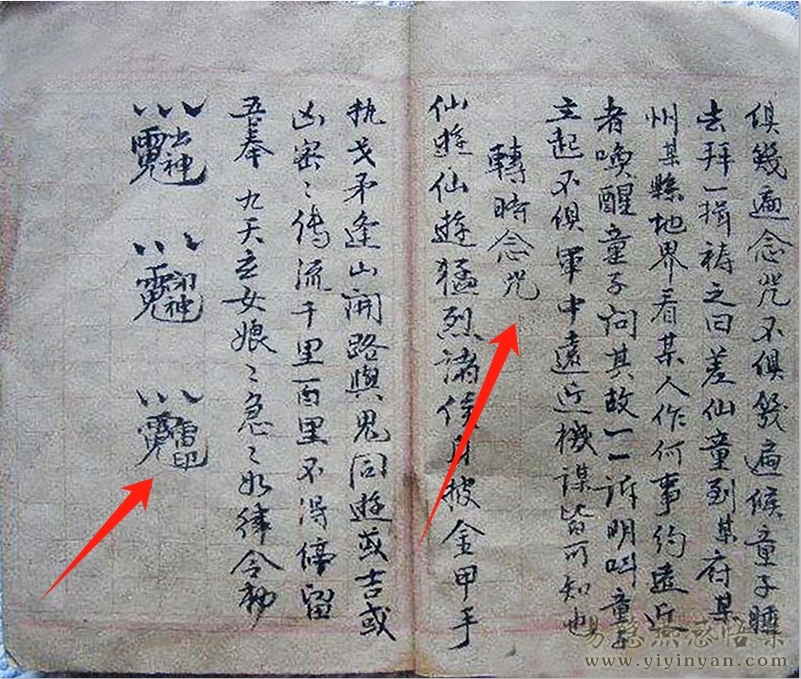 俱幾遍念咒不俱幾遍候童子睡
去拜一揖祷之曰差仙童到某府某
州某縣地界看某人作何事約遠近
者喚醒童子问其故一一訴明叫童子
主起不俱軍中遠近機谋皆可知也
轉時念咒
仙遊仙遊猛烈諸侯身披金甲手
执戈矛逢山開路與鬼同遊或吉或
凶密〻傳流千里百里不得停留
吾奉 九天玄女娘〻急〻如律令勅
www.yiyinyan.com